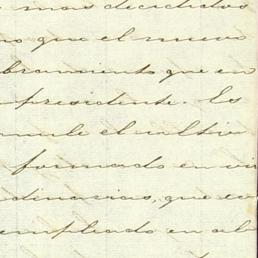 mas decididos
no que el nuevo
bramiento que en
presidente. Es
mule el cultivo
formado en vir
dinarias, que en
empleado en al